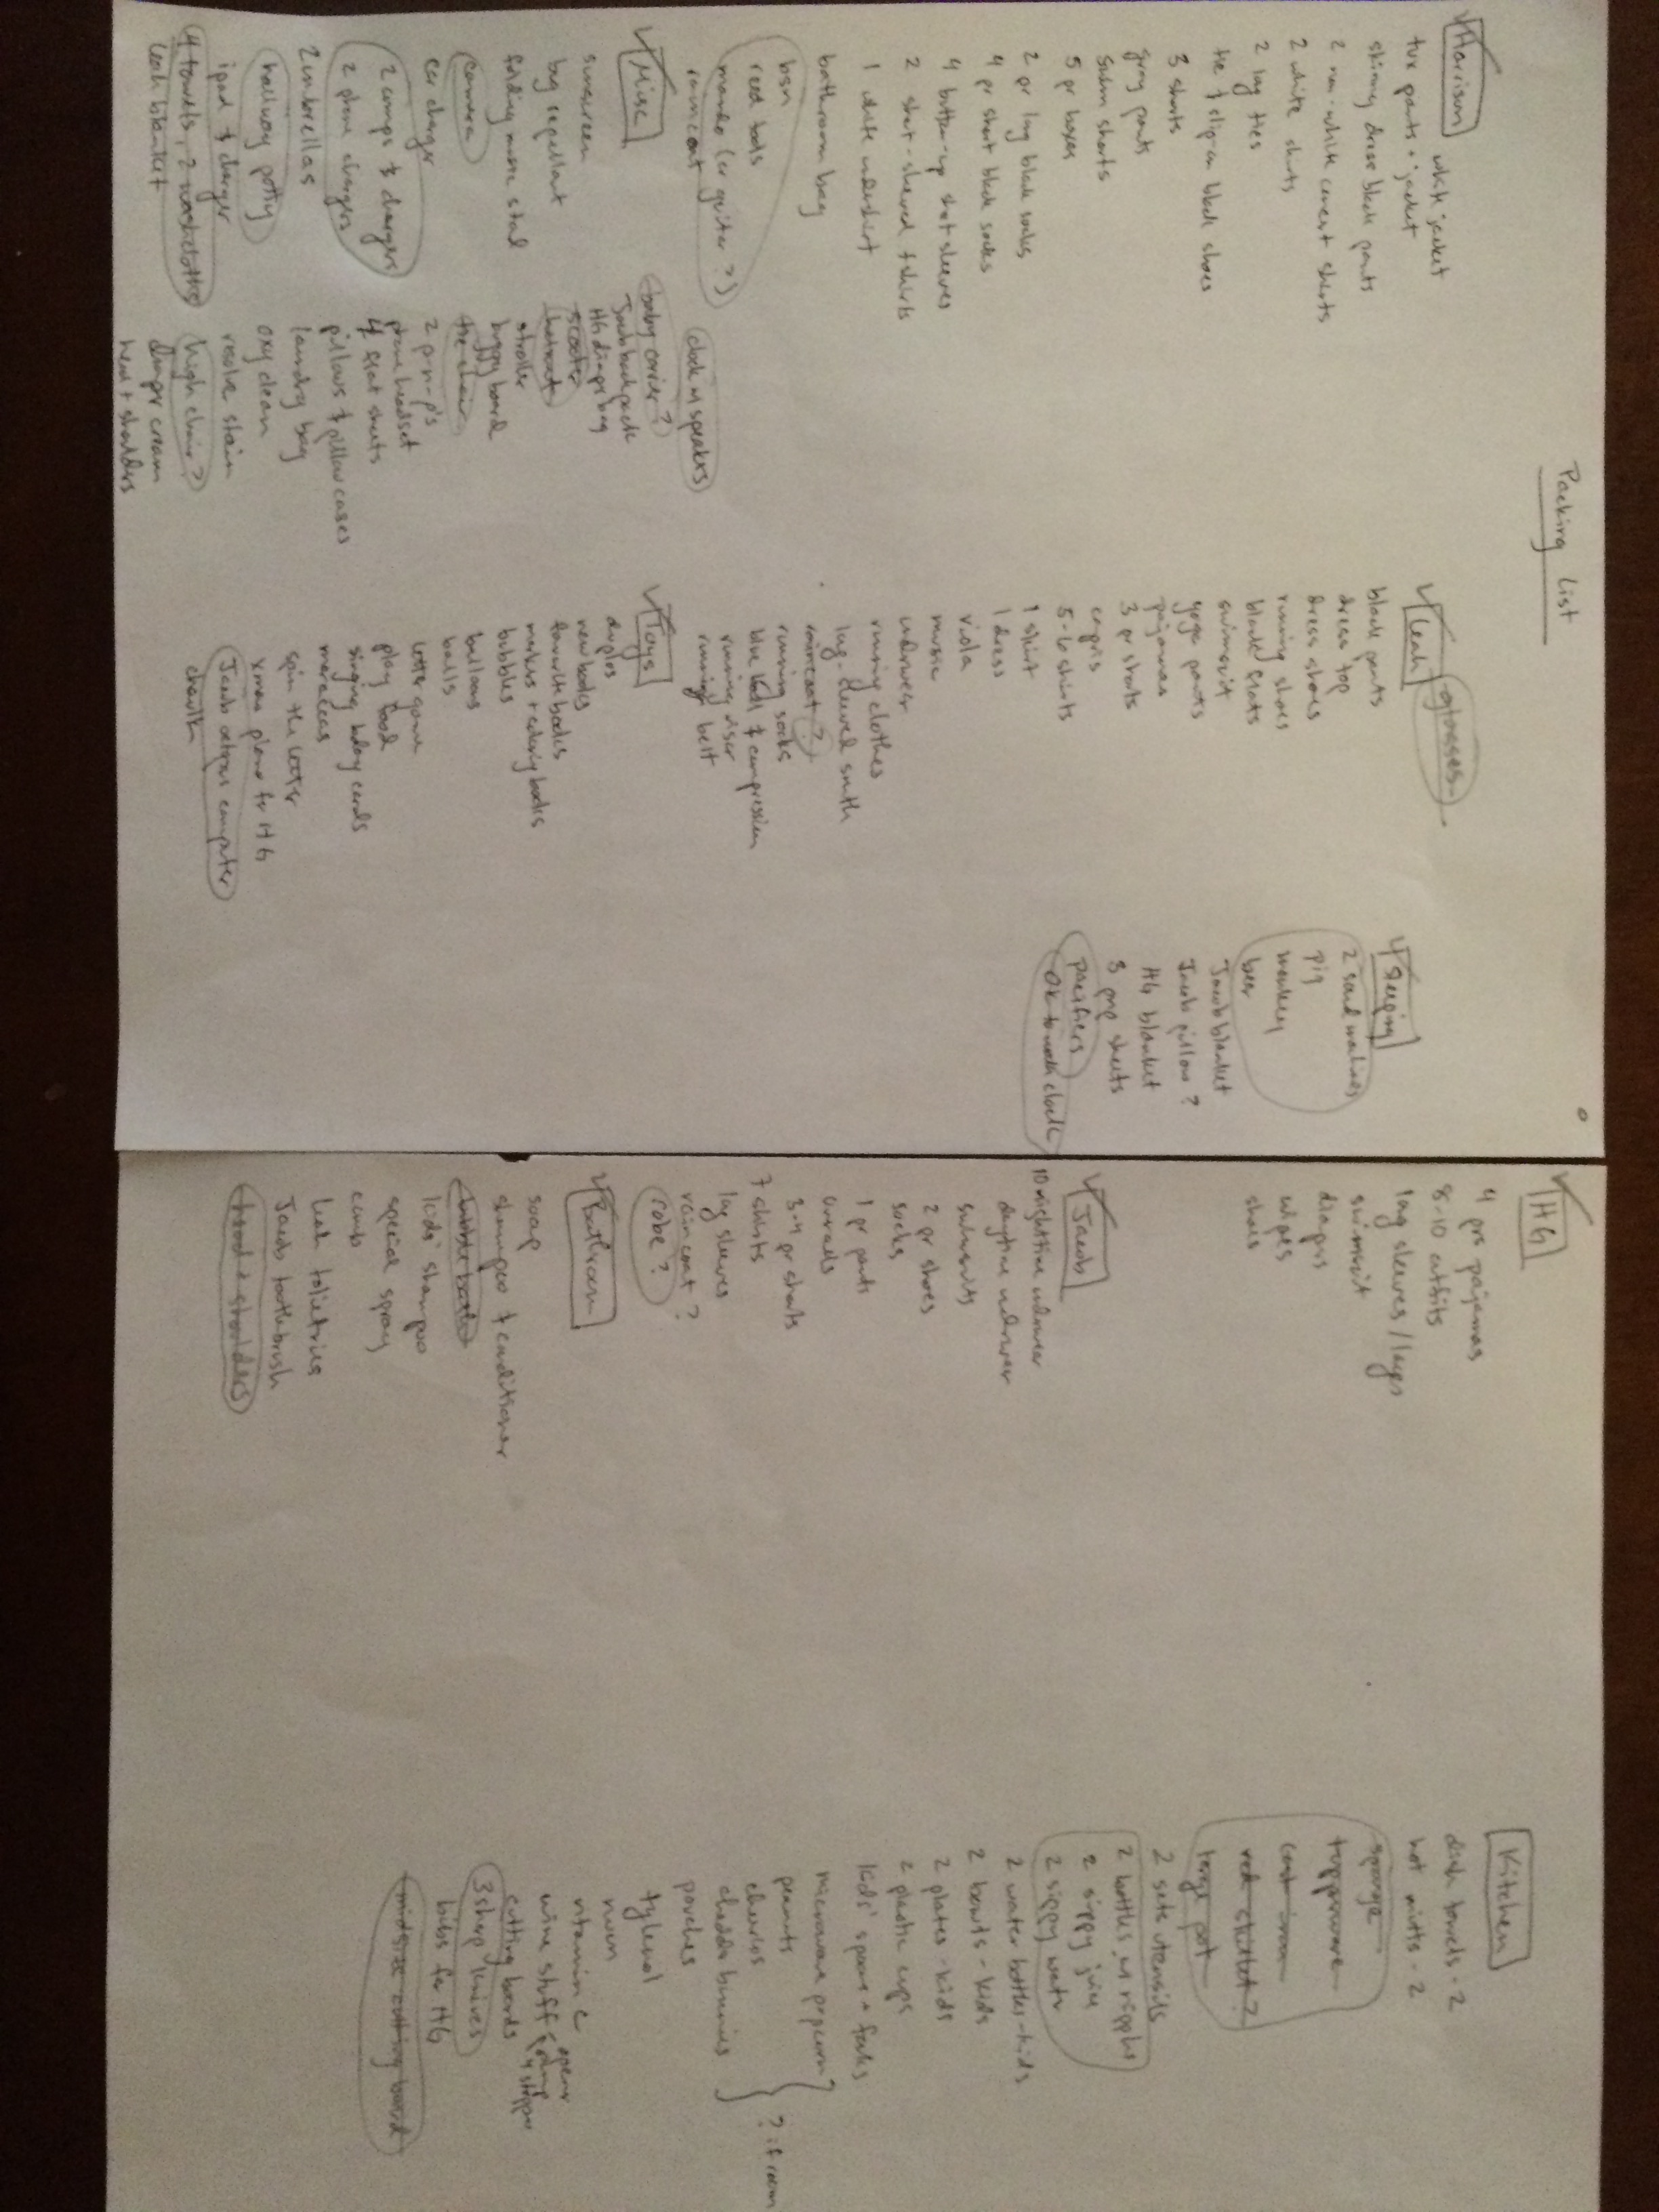 Packing List
Harrison
white jacket
tux pants + jacket
skinny dress black pants
2 non-white concert shirts
2 white shirts
2 long ties
tie & clip-on black shoes
3 shorts
gray pants
swim shorts
5 pr boxers
2 pr long black socks
4 pr short black socks
4 button-up short sleeves
2 short-sleeved t-shirts
1 white undershirt
bathroom bag
bsn
reed tools
mando (or guitar?)
raincoat
Misc
sunscreen
bug repellant
folding music stand
camera
car charger
2 comps & chargers
2 phone chargers
2 umbrellas
hallway potty
ipad & charger
4 towels, 2 washcloths
Leah blanket
clock w speakers
baby carrier?
Jacob backpack
HG diaper bag
scooter
stroller
buggy board
2 p-n-p's
phone headset
4 flat sheets
pillows & pillow cases
laundry bag
oxy clean
resolve stain
high chair?
diaper cream
head + shoulders
Leah
glasses
black pants
dress top
dress shoes
running shoes
black flats
swimsuit
yoga pants
pajamas
3 pr shorts
capris
5-6 shirts
1 skirt
1 dress
viola
music
underwear
running clothes
long-sleeved smith
raincoat?
running socks
blue Keds & compression
running visor
running belt
Toys
duplos
new books
favorite books
markers + coloring books
bubbles
balloons
balls
letter game
play food
singing bday cards
maracas
spin the letter
xmas piano for HG
Jacob octopus computer
chaulk
Sleeping
2 sound machines
pig
monkey
bear
Jacob blanket
Jacob pillow?
HG blanket
3 pnp sheets
pacifiers
OK to wake clock
HG
4 prs pajamas
8-10 outfits
long sleeves/layers
swimsuit
diapers
wipes
shoes
Jacob
10 nighttime underwear
daytime underwear
swimsuits
2 pr shoes
socks
1 pr pants
overalls
3-4 pr shorts
7 shirts
long sleeves
raincoat?
robe?
Bathroom
soap
shampoo & conditioner
kids' shampoo
special spray
comb
Leah toiletries
Jacob toothbrush
head & shoulders
Kitchen
dish towels - 2
hot mitts - 2
sponge
tupperware
cast iron
red skillet?
large pot
2 sets utensils
2 bottles w nipples
2 sippy juice
2 sippy water
2 water bottles - kids
2 bowls - kids
2 plates - kids
2 plastic cups
kids' spoons + forks
microwave popcorn?
peanuts
cheerios
cheddar bunnies
? if room
pouches
tylenol
nuun
vitamin c
wine stuff
opener
pump
4 stopper
cutting boards
3 sharp knives
bibs for HG
midsize cutting board